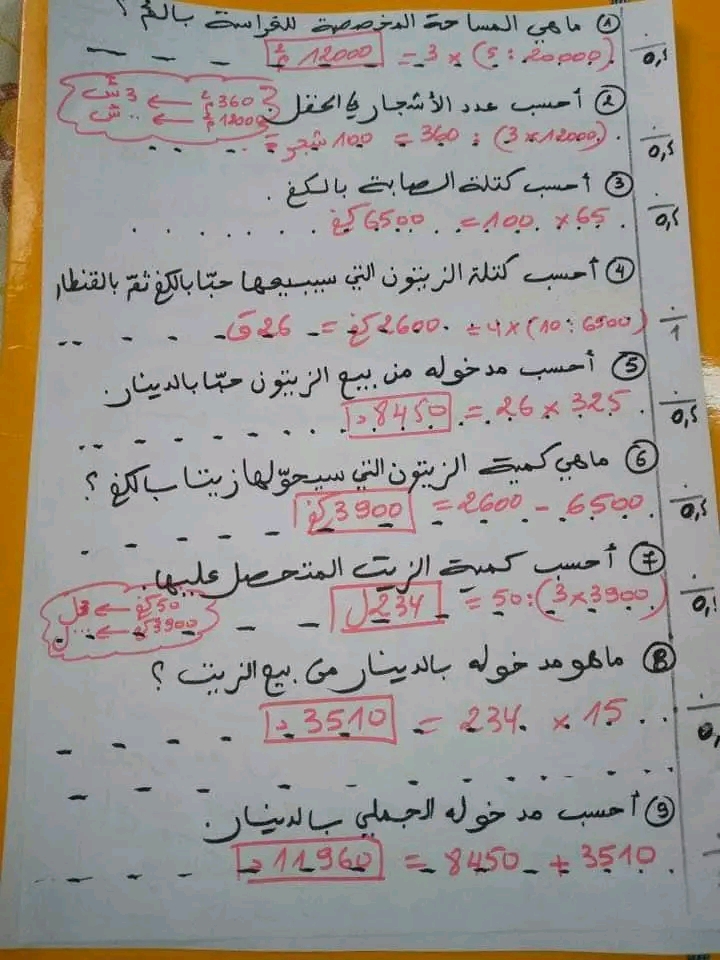 ① ماهي المساحة المخصصة للغراسة بالم² ؟
(20.000 : 5) × 3 = 12000 م²
0,5
② أحسب عدد الأشجار في الحقل
360 م² ← 3 ش
12000 م² ← .. ش
(12000 × 3) : 360 = 100 شجرة
0,5
③ أحسب كتلة الصابة بالكغ .
65 × 100 = 6500 كغ
0,5
④ أحسب كتلة الزيتون التي سيبيعها حبّا بالكغ ثمّ بالقنطار
(6500 : 10) × 4 = 2600 كغ = 26 ق
1
⑤ أحسب مدخوله من بيع الزيتون حبّا بالدينار.
325 × 26 = 8450 د
0,5
⑥ ماهي كمية الزيتون التي سيحوّلها زيتا بالكغ ؟
6500 - 2600 = 3900 كغ
0,5
⑦ أحسب كمية الزيت المتحصل عليها.
50 كغ ← 3 ل
3900 كغ ← ... ل
(3900 × 3) : 50 = 234 ل
⑧ ماهو مدخوله بالدينار من بيع الزيت ؟
15 × 234 = 3510 د
⑨ أحسب مدخوله الجملي بالدينار.
3510 + 8450 = 11960 د